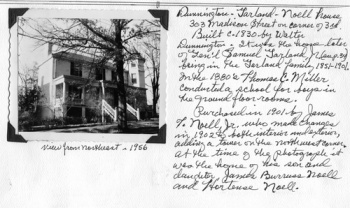 Dunnington - Garland - Noell House
303 Madison Street on corner of 3rd.
Built c. 1830 by Walter
Dunnington. It was the home later
of Gen'l Samuel Garland,
being in the Garland family, 1851-1901.
In the 1880's Thomas E. Miller
conducted a school for boys in
the ground floor rooms.
Purchased in 1901 by James
T. Noell, Jr. who made changes
in 1902 to both interior and exterior,
adding a tower on the northwest corner.
At the time of the photograph it
was the home of his son and
daughter, James Burruss Noell
and Hortense Noell.
View from Northeast - 1956